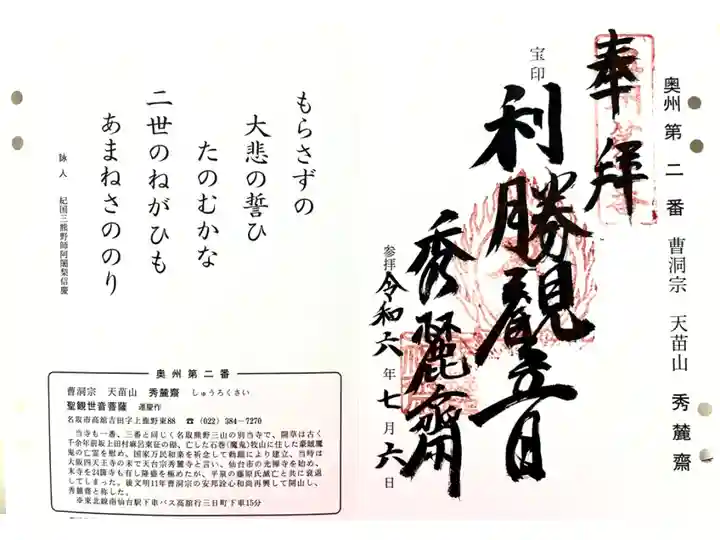 奥州第二番 曹洞宗 天苗山 秀麓齋
奉拝
宝印
利勝観立日
秀麗齋
参拝 令和六年七月六日
もらさずの
大悲の誓ひ
たのむかな
二世のねがひも
あまねさののり
詠人 紀国三熊野師阿闍梨信慶
奥州第二番
曹洞宗 天苗山 秀麓齋 しゅうろくさい
聖観世音菩薩 運慶作
名取市高館吉田字上鹿野東88 ☎(022)384-7270
当寺も一番、三番と同じく名取熊野三山の別当寺で、開草は古く
千余年前坂上田村麻呂東征の砌、亡した石巻(魔鬼)牧山に住した豪賊魔
鬼の亡霊を慰め、国家万民和楽を祈念して勅願により建立、当時は
大阪四天王寺の末で天台宗秀麓寺と言い、仙台市の光禅寺を始め、
末寺を24個寺も有し隆盛を極めたが、平泉の藤原氏滅亡と共に衰退
してしまった。後文明11年曹洞宗の安邦詮心和尚再興して開山し、
秀麓齋と称した。
※東北線南仙台駅下車バス高舘行三日町下車15分